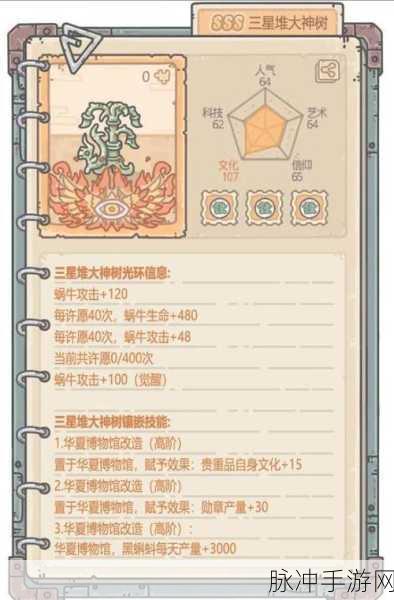 SSS 三星堆大神树
0
人气
64
科技
62
艺术
64
文化
107
信仰
65
三星堆大神树光环信息:
蜗牛攻击+120
每许愿40次，蜗牛生命+480
每许愿40次，蜗牛攻击+48
当前共许愿0/400次
蜗牛攻击+100（觉醒）
三星堆大神树镶嵌技能:
1.华夏博物馆改造（高阶）
置于华夏博物馆，赋予效果：贵重品自身文化+15
2.华夏博物馆改造（高阶）
置于华夏博物馆，赋予效果：勋章产量+30
3.华夏博物馆改造（高阶）:
华夏博物馆，黑蝌蚪每天产量+3000
脉冲手游网